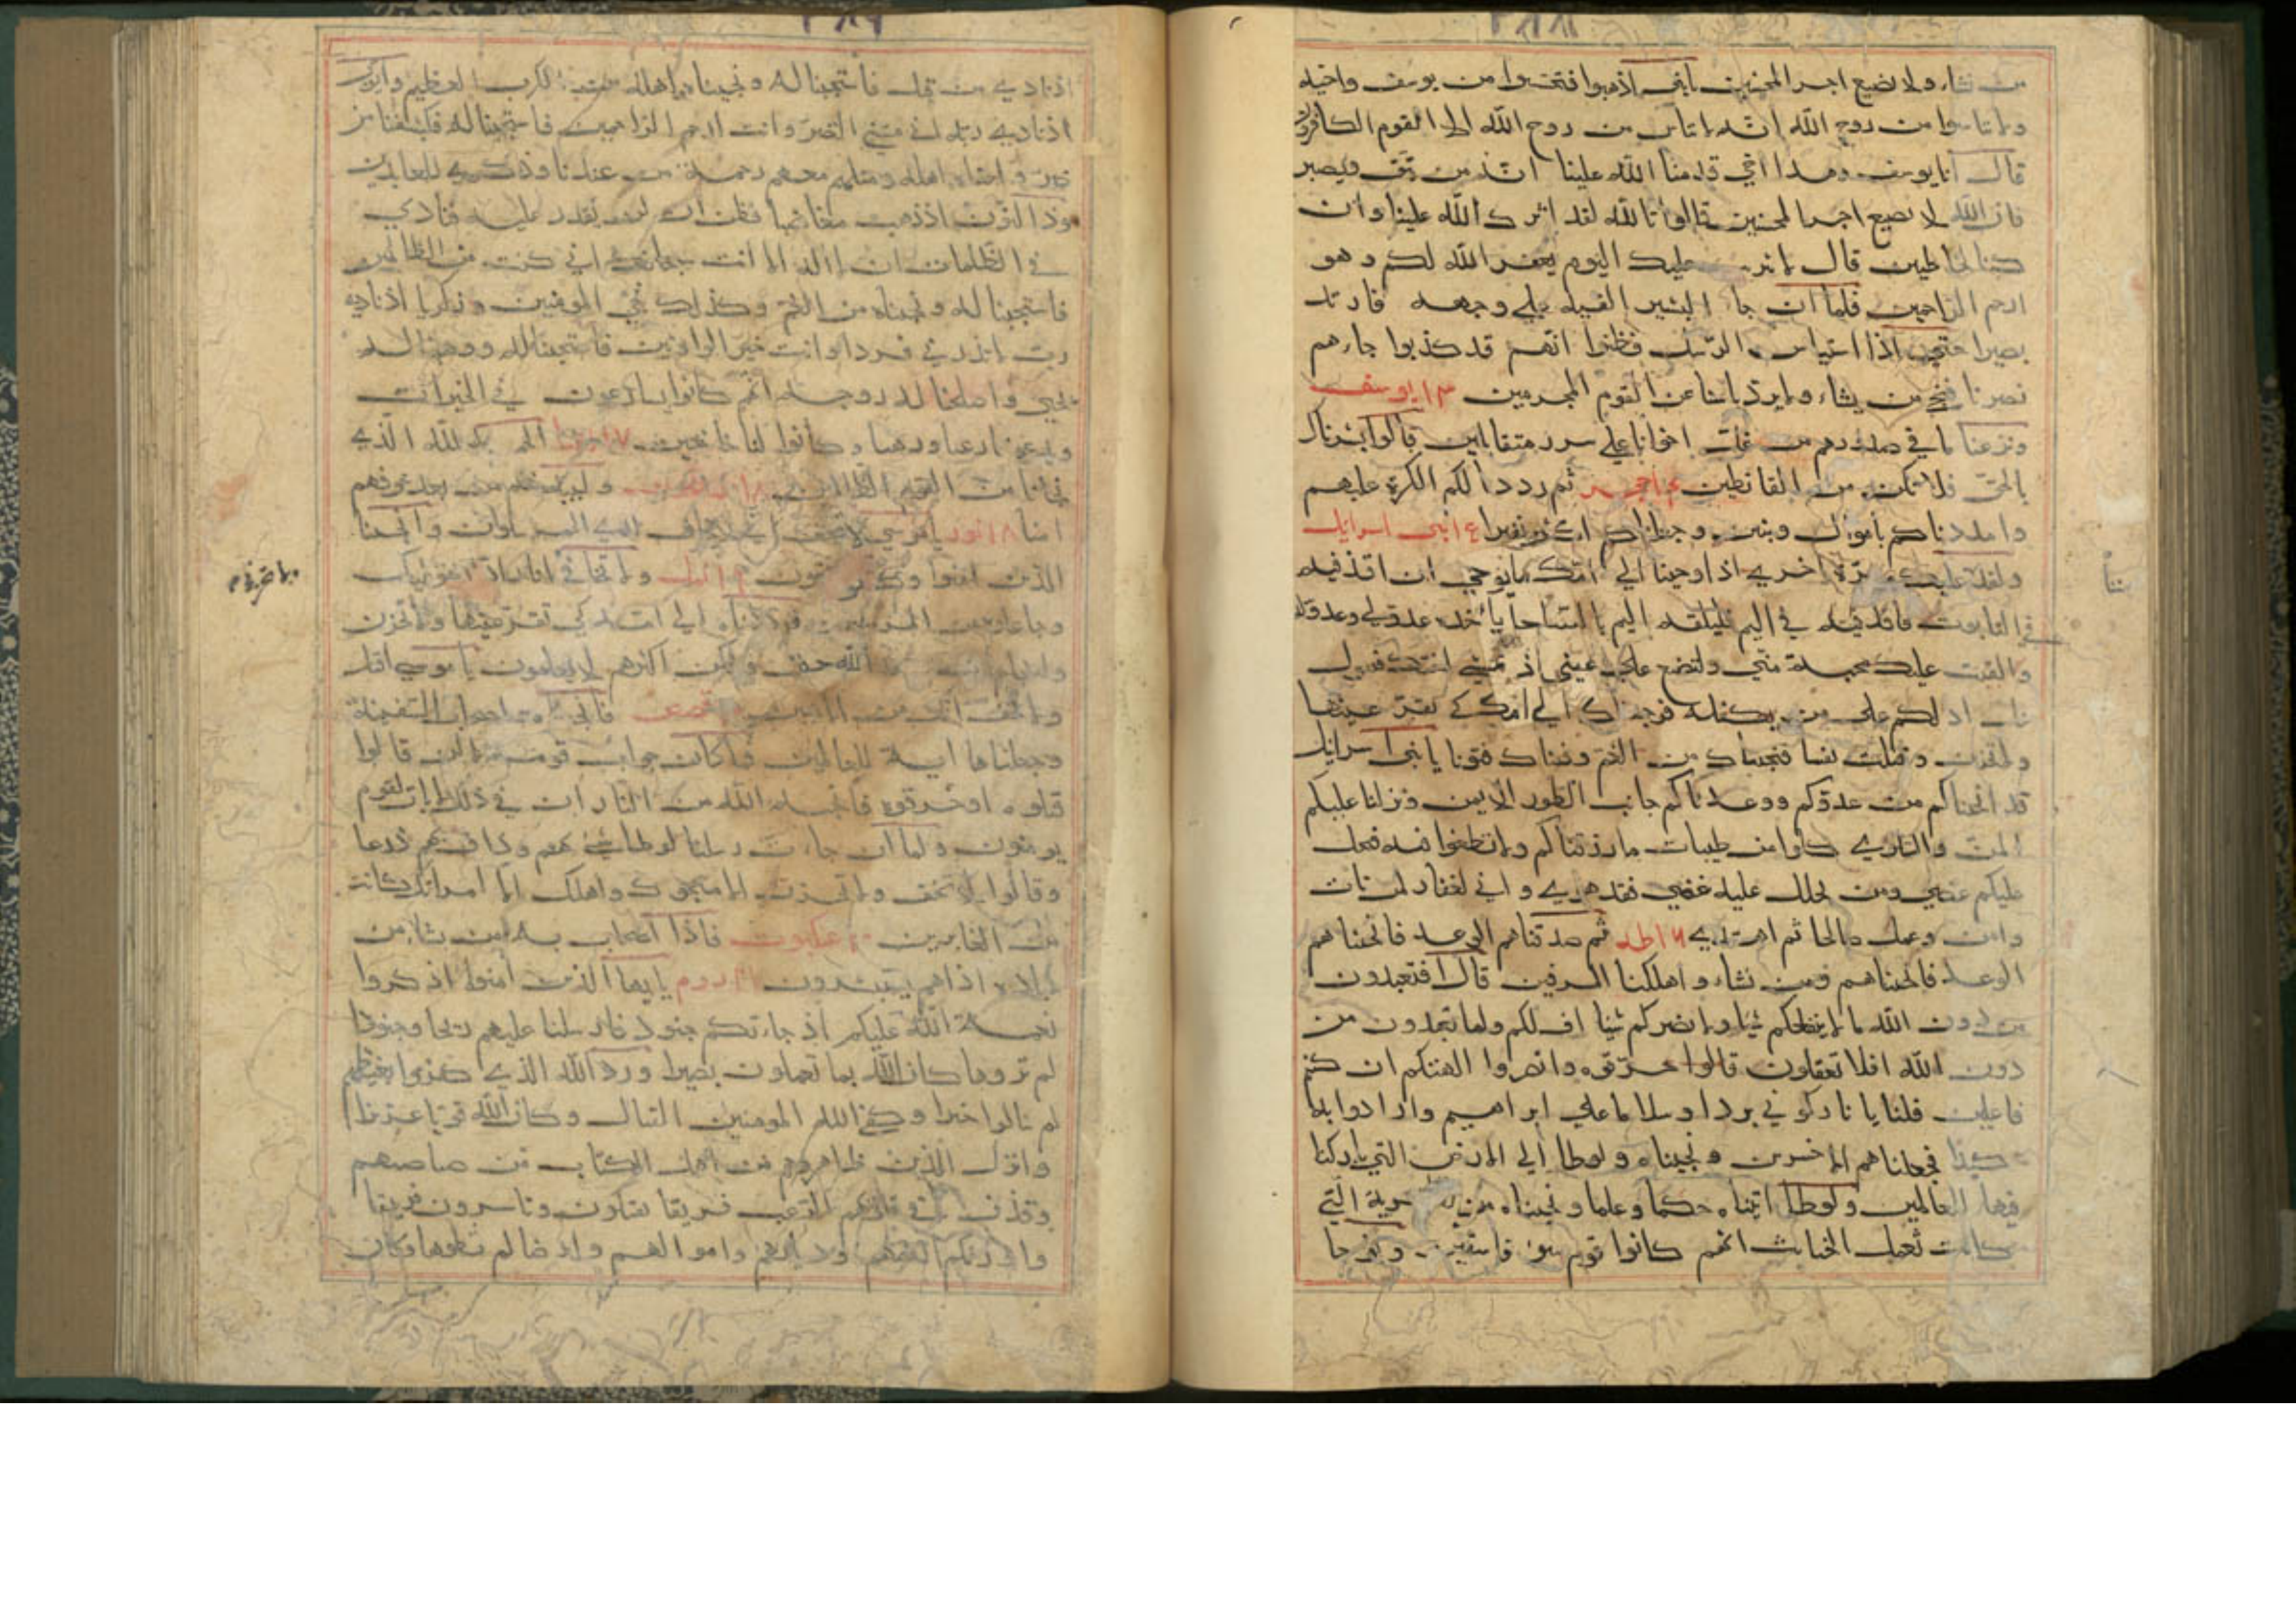 من نشاء ولا نضيع اجر المحسنين يا بني اذهبوا فتحسسوا من يوسف واخيه
ولا تايسوا من روح الله انه لا يايس من روح الله الا القوم الكافرون
قال انا يوسف وهذا اخي قد من الله علينا انه من يتق ويصبر
فان الله لا يضيع اجر المحسنين قالوا تالله لقد اثرك الله علينا وان
كنا لخاطيين قال لا تثريب عليكم اليوم يغفر الله لكم وهو
ارحم الراحمين فلما ان جاء البشير القيه على وجهه فارتد
بصيرا حتى اذا استياس الرسل وظنوا انهم قد كذبوا جاءهم
نصرنا فنجي من يشاء ولا يرد باسنا عن القوم المجرمين ١٣ يوسف
ونزعنا ما في صدورهم من غل اخوانا على سرر متقابلين قالوا بشرناك
بالحق فلا تكن من القانطين حجر ثم رددنا لكم الكرة عليهم
وامددناكم باموال وبنين وجعلناكم اكثر نفيرا بني اسرائيل
ولقد مننا عليك مرة اخرى اذ اوحينا الى امك ما يوحى ان اقذفيه
في التابوت فاقذفيه في اليم فليلقه اليم بالساحل ياخذه عدو لي وعدو له
والقيت عليك محبة مني ولتصنع على عيني اذ تمشي اختك فتقول
هل ادلكم على من يكفله فرجعناك الى امك كي تقر عينها
ولا تحزن وقتلت نفسا فنجيناك من الغم وفتناك فتونا يا بني اسرائيل
قد انجيناكم من عدوكم وواعدناكم جانب الطور الايمن ونزلنا عليكم
المن والسلوى كلوا من طيبات ما رزقناكم ولا تطغوا فيه فيحل
عليكم غضبي ومن يحلل عليه غضبي فقد هوى واني لغفار لمن تاب
وامن وعمل صالحا ثم اهتدى ١٦ طه ثم صدقناهم الوعد فانجيناهم
الوعد فانجيناهم ومن نشاء واهلكنا المسرفين قال افتعبدون
من دون الله ما لا ينفعكم شيئا ولا يضركم شيئا اف لكم ولما تعبدون من
دون الله افلا تعقلون قالوا حرقوه وانصروا الهتكم ان كنتم
فاعلين قلنا يا نار كوني بردا وسلاما على ابراهيم وارادوا به
كيدا فجعلناهم الاخسرين ونجيناه ولوطا الى الارض التي باركنا
فيها للعالمين ولوطا اتيناه حكما وعلما ونجيناه من القرية التي
كانت تعمل الخبائث انهم كانوا قوم سوء فاسقين ونوحا
٢٨٩
اذ نادى من قبل فاستجبنا له ونجيناه واهله من الكرب العظيم وايوب
اذ نادى ربه اني مسني الضر وانت ارحم الراحمين فاستجبنا له فكشفنا من
ضر واتيناه اهله ومثلهم معهم رحمة من عندنا وذكرى للعابدين
وذا النون اذ ذهب مغاضبا فظن ان لن نقدر عليه فنادى
في الظلمات ان لا اله الا انت سبحانك اني كنت من الظالمين
فاستجبنا له ونجيناه من الغم وكذلك ننجي المومنين وزكريا اذ نادى
رب لا تذرني فردا وانت خير الوارثين فاستجبنا له ووهبنا له
يحيى واصلحنا له زوجه انهم كانوا يسارعون في الخيرات
ويدعوننا رغبا ورهبا وكانوا لنا خاشعين الحمد لله الذي
نجانا من القوم الظالمين وليبدلنهم من بعد خوفهم
امنا ١٨ نور يا موسى لا تخف اني لا يخاف لدي المرسلون وانجينا
الذين امنوا وكانوا يتقون نمل ولا تخافي ولا تحزني
وجاعلوه من المرسلين فرددناه الى امه كي تقر عينها ولا تحزن
ولتعلم ان وعد الله حق ولكن اكثرهم لا يعلمون يا موسى اقبل
ولا تخف انك من الامنين قصص فانجيناه واصحاب السفينة
وجعلناها اية للعالمين فما كان جواب قومه الا ان قالوا
اقتلوه او حرقوه فانجاه الله من النار ان في ذلك لايات لقوم
يومنون ولما ان جاءت رسلنا لوطا سيء بهم وضاق بهم ذرعا
وقالوا لا تخف ولا تحزن انا منجوك واهلك الا امراتك كانت
من الغابرين عنكبوت فاذا اصاب به من يشاء من
عباده اذا هم يستبشرون روم يا ايها الذين امنوا اذكروا
نعمة الله عليكم اذ جاءتكم جنود فارسلنا عليهم ريحا وجنودا
لم تروها وكان الله بما تعملون بصيرا ورد الله الذين كفروا بغيظهم
لم ينالوا خيرا وكفى الله المومنين القتال وكان الله قويا عزيزا
وانزل الذين ظاهروهم من اهل الكتاب من صياصيهم
وقذف في قلوبهم الرعب فريقا تقتلون وتاسرون فريقا
واورثكم ارضهم وديارهم واموالهم وارضا لم تطوها وكان